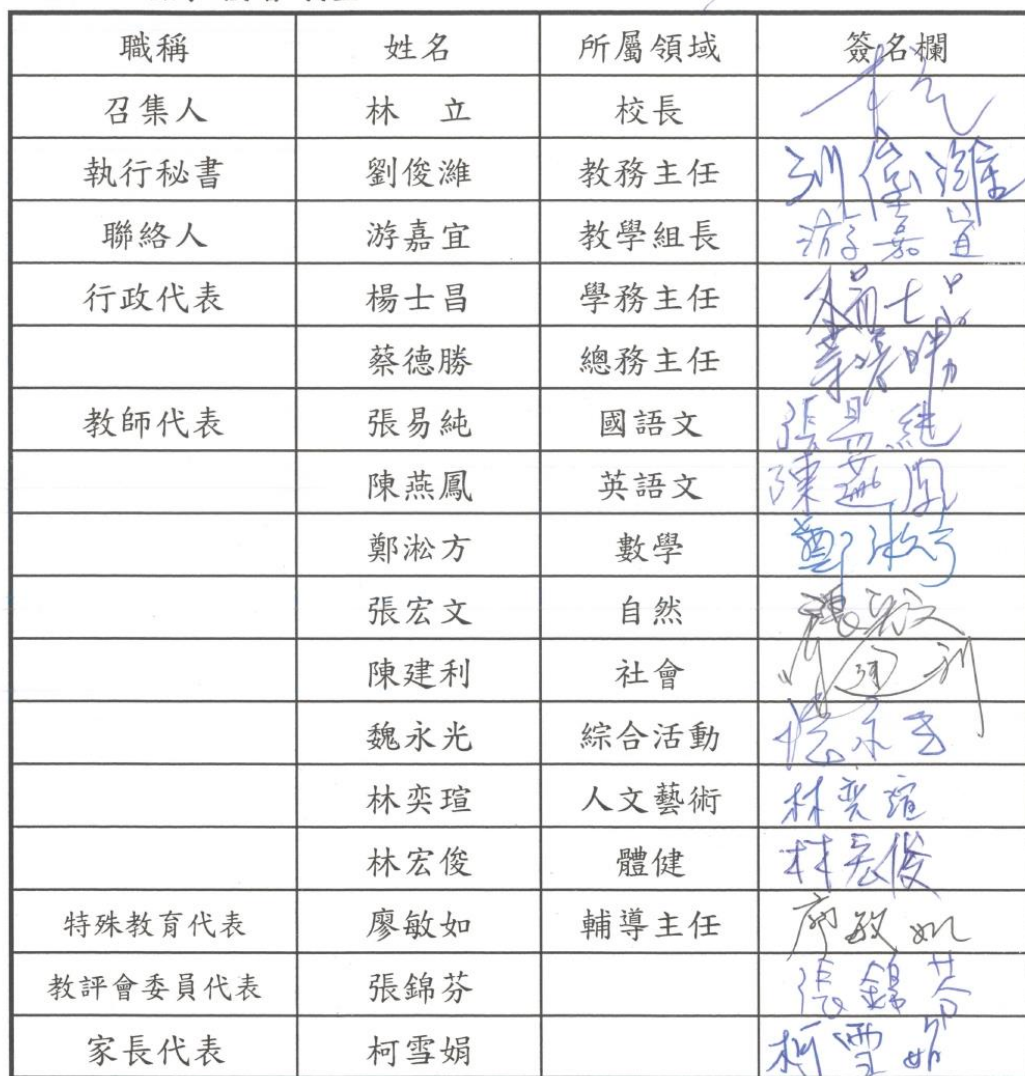 職稱 姓名 所屬領域 簽名欄
召集人 林 立 校長
執行秘書 劉俊濰 教務主任 刘俊濰
聯絡人 游嘉宜 教學組長 游嘉宜
行政代表 楊士昌 學務主任 楊士昌
蔡德勝 總務主任
教師代表 張易純 國語文 張易純
陳燕鳳 英語文 陳燕凤
鄭淞方 數學
張宏文 自然 張宏文
陳建利 社會
魏永光 綜合活動
林奕瑄 人文藝術 林奕瑄
林宏俊 體健 林宏俊
特殊教育代表 廖敏如 輔導主任 廖敏如
教評會委員代表 張錦芬 張錦芬
家長代表 柯雪娟 柯雪娟